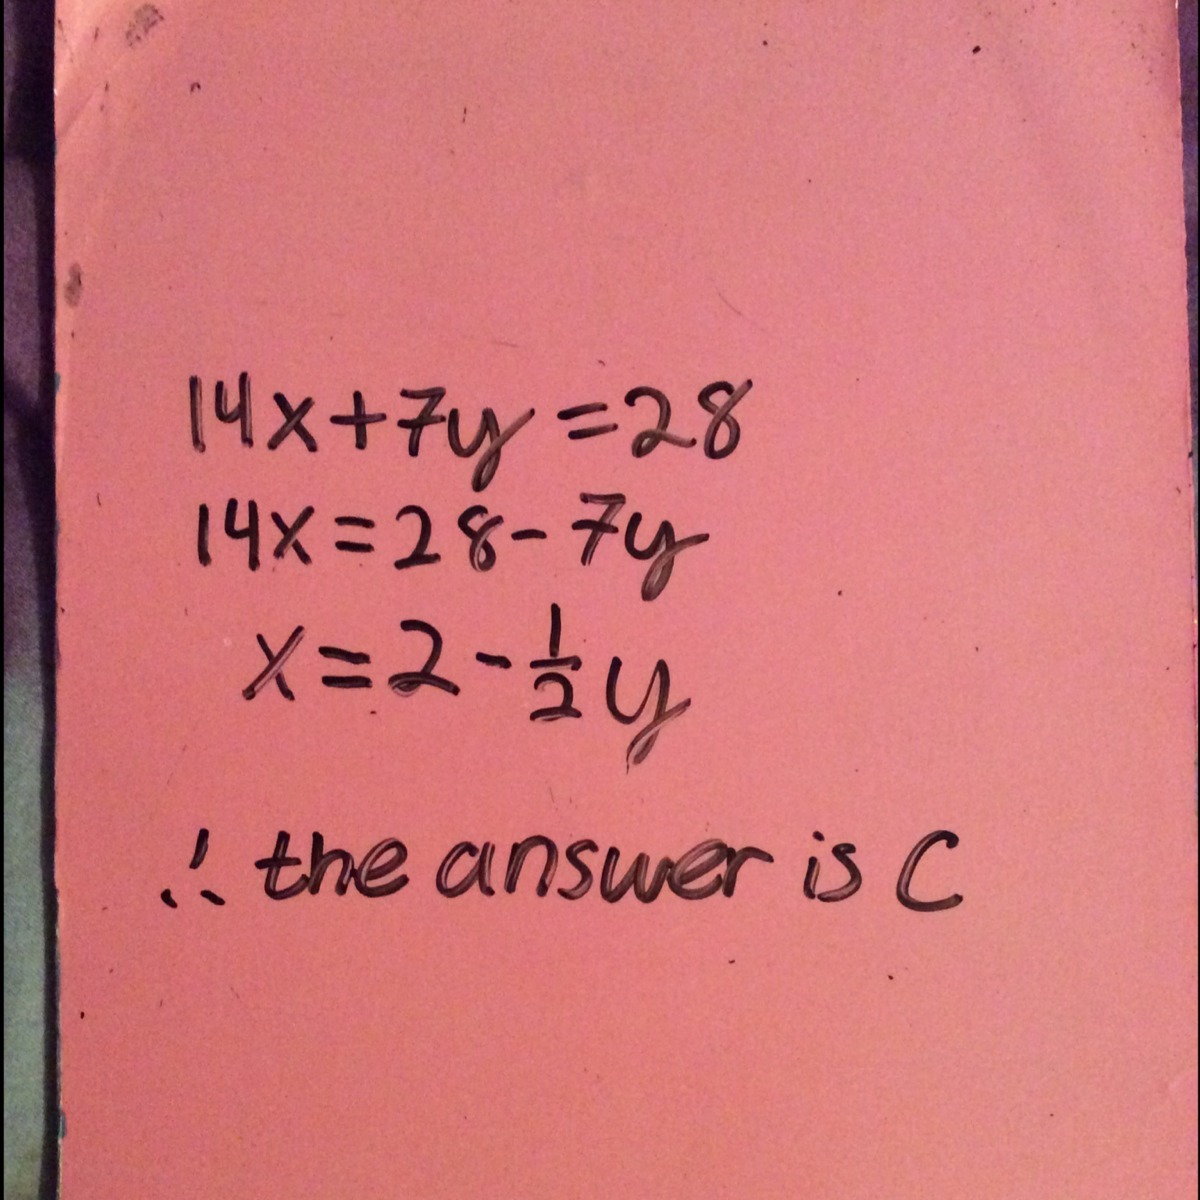 14x+7y=28
14x=28-7y
x=2-½y
∴ the answer is C